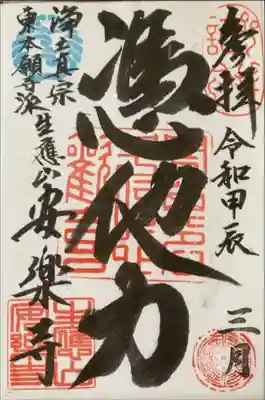 参拝
令和甲辰 三月
憑他力
浄土真宗
東本願寺派
生應山 安楽寺